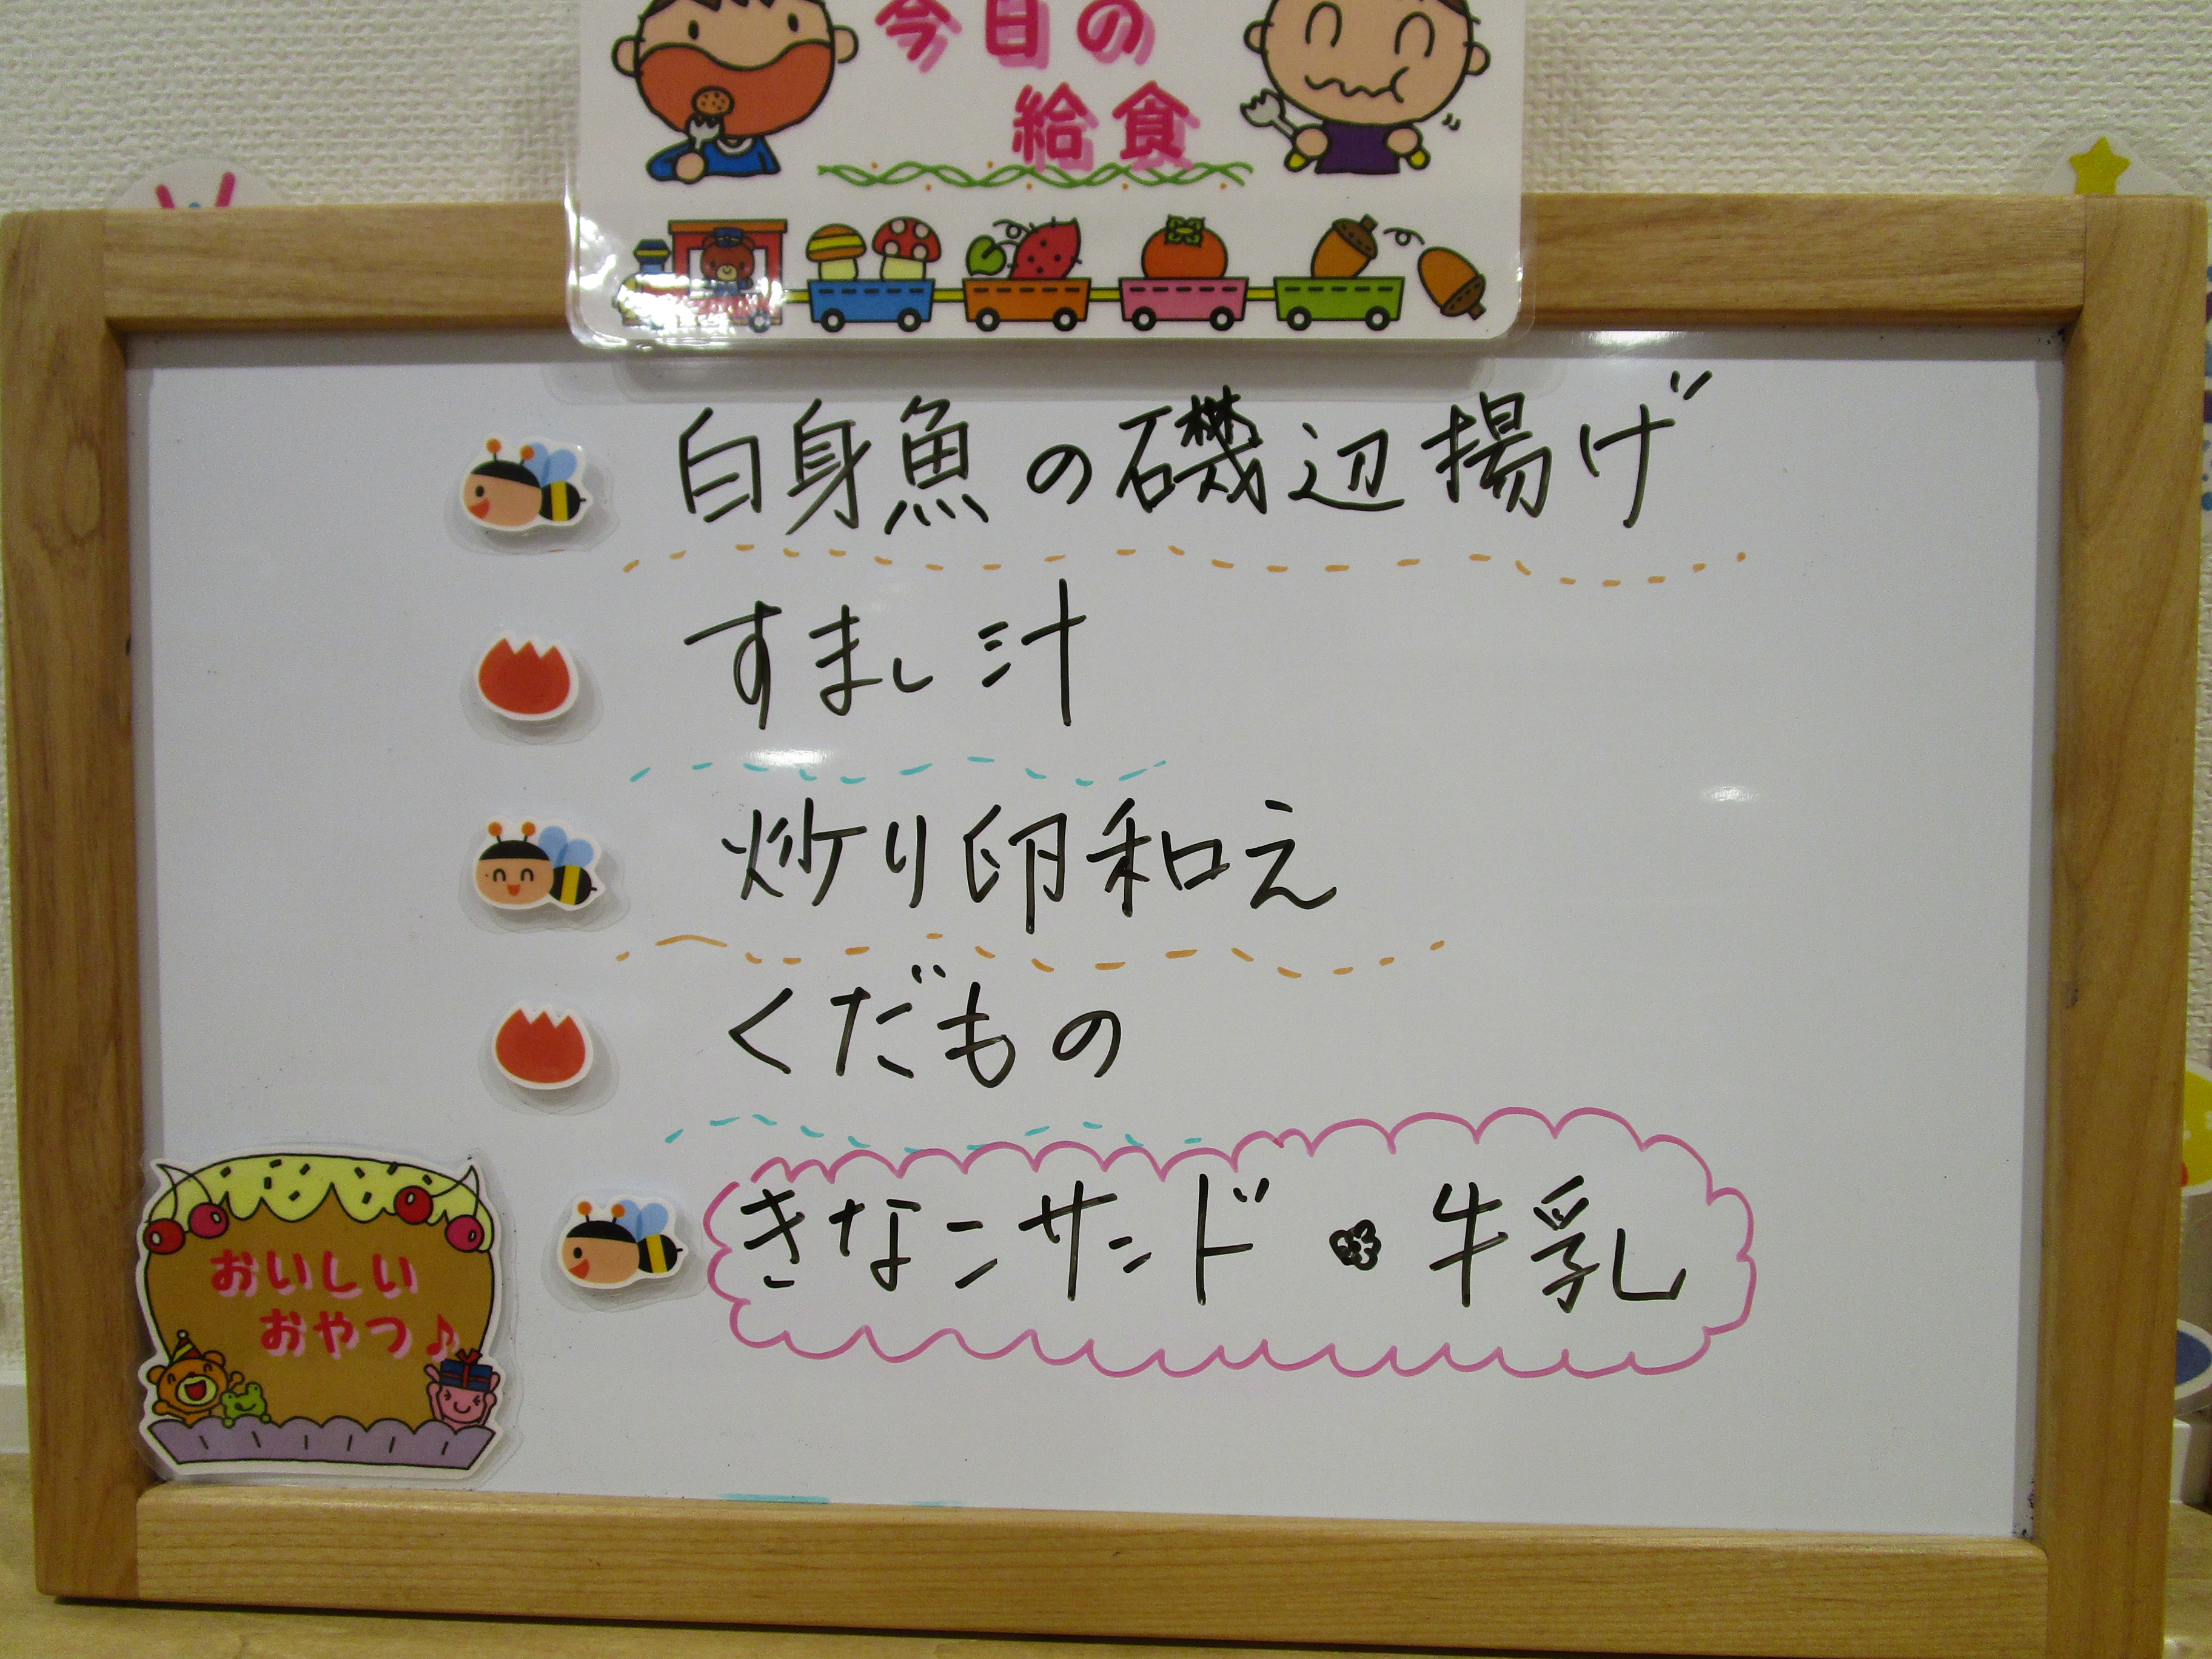 今日の
給食
白身魚の磯辺揚げ
すまし汁
炒り卵和え
くだもの
きなこサンド・牛乳
おいしい
おやつ♪